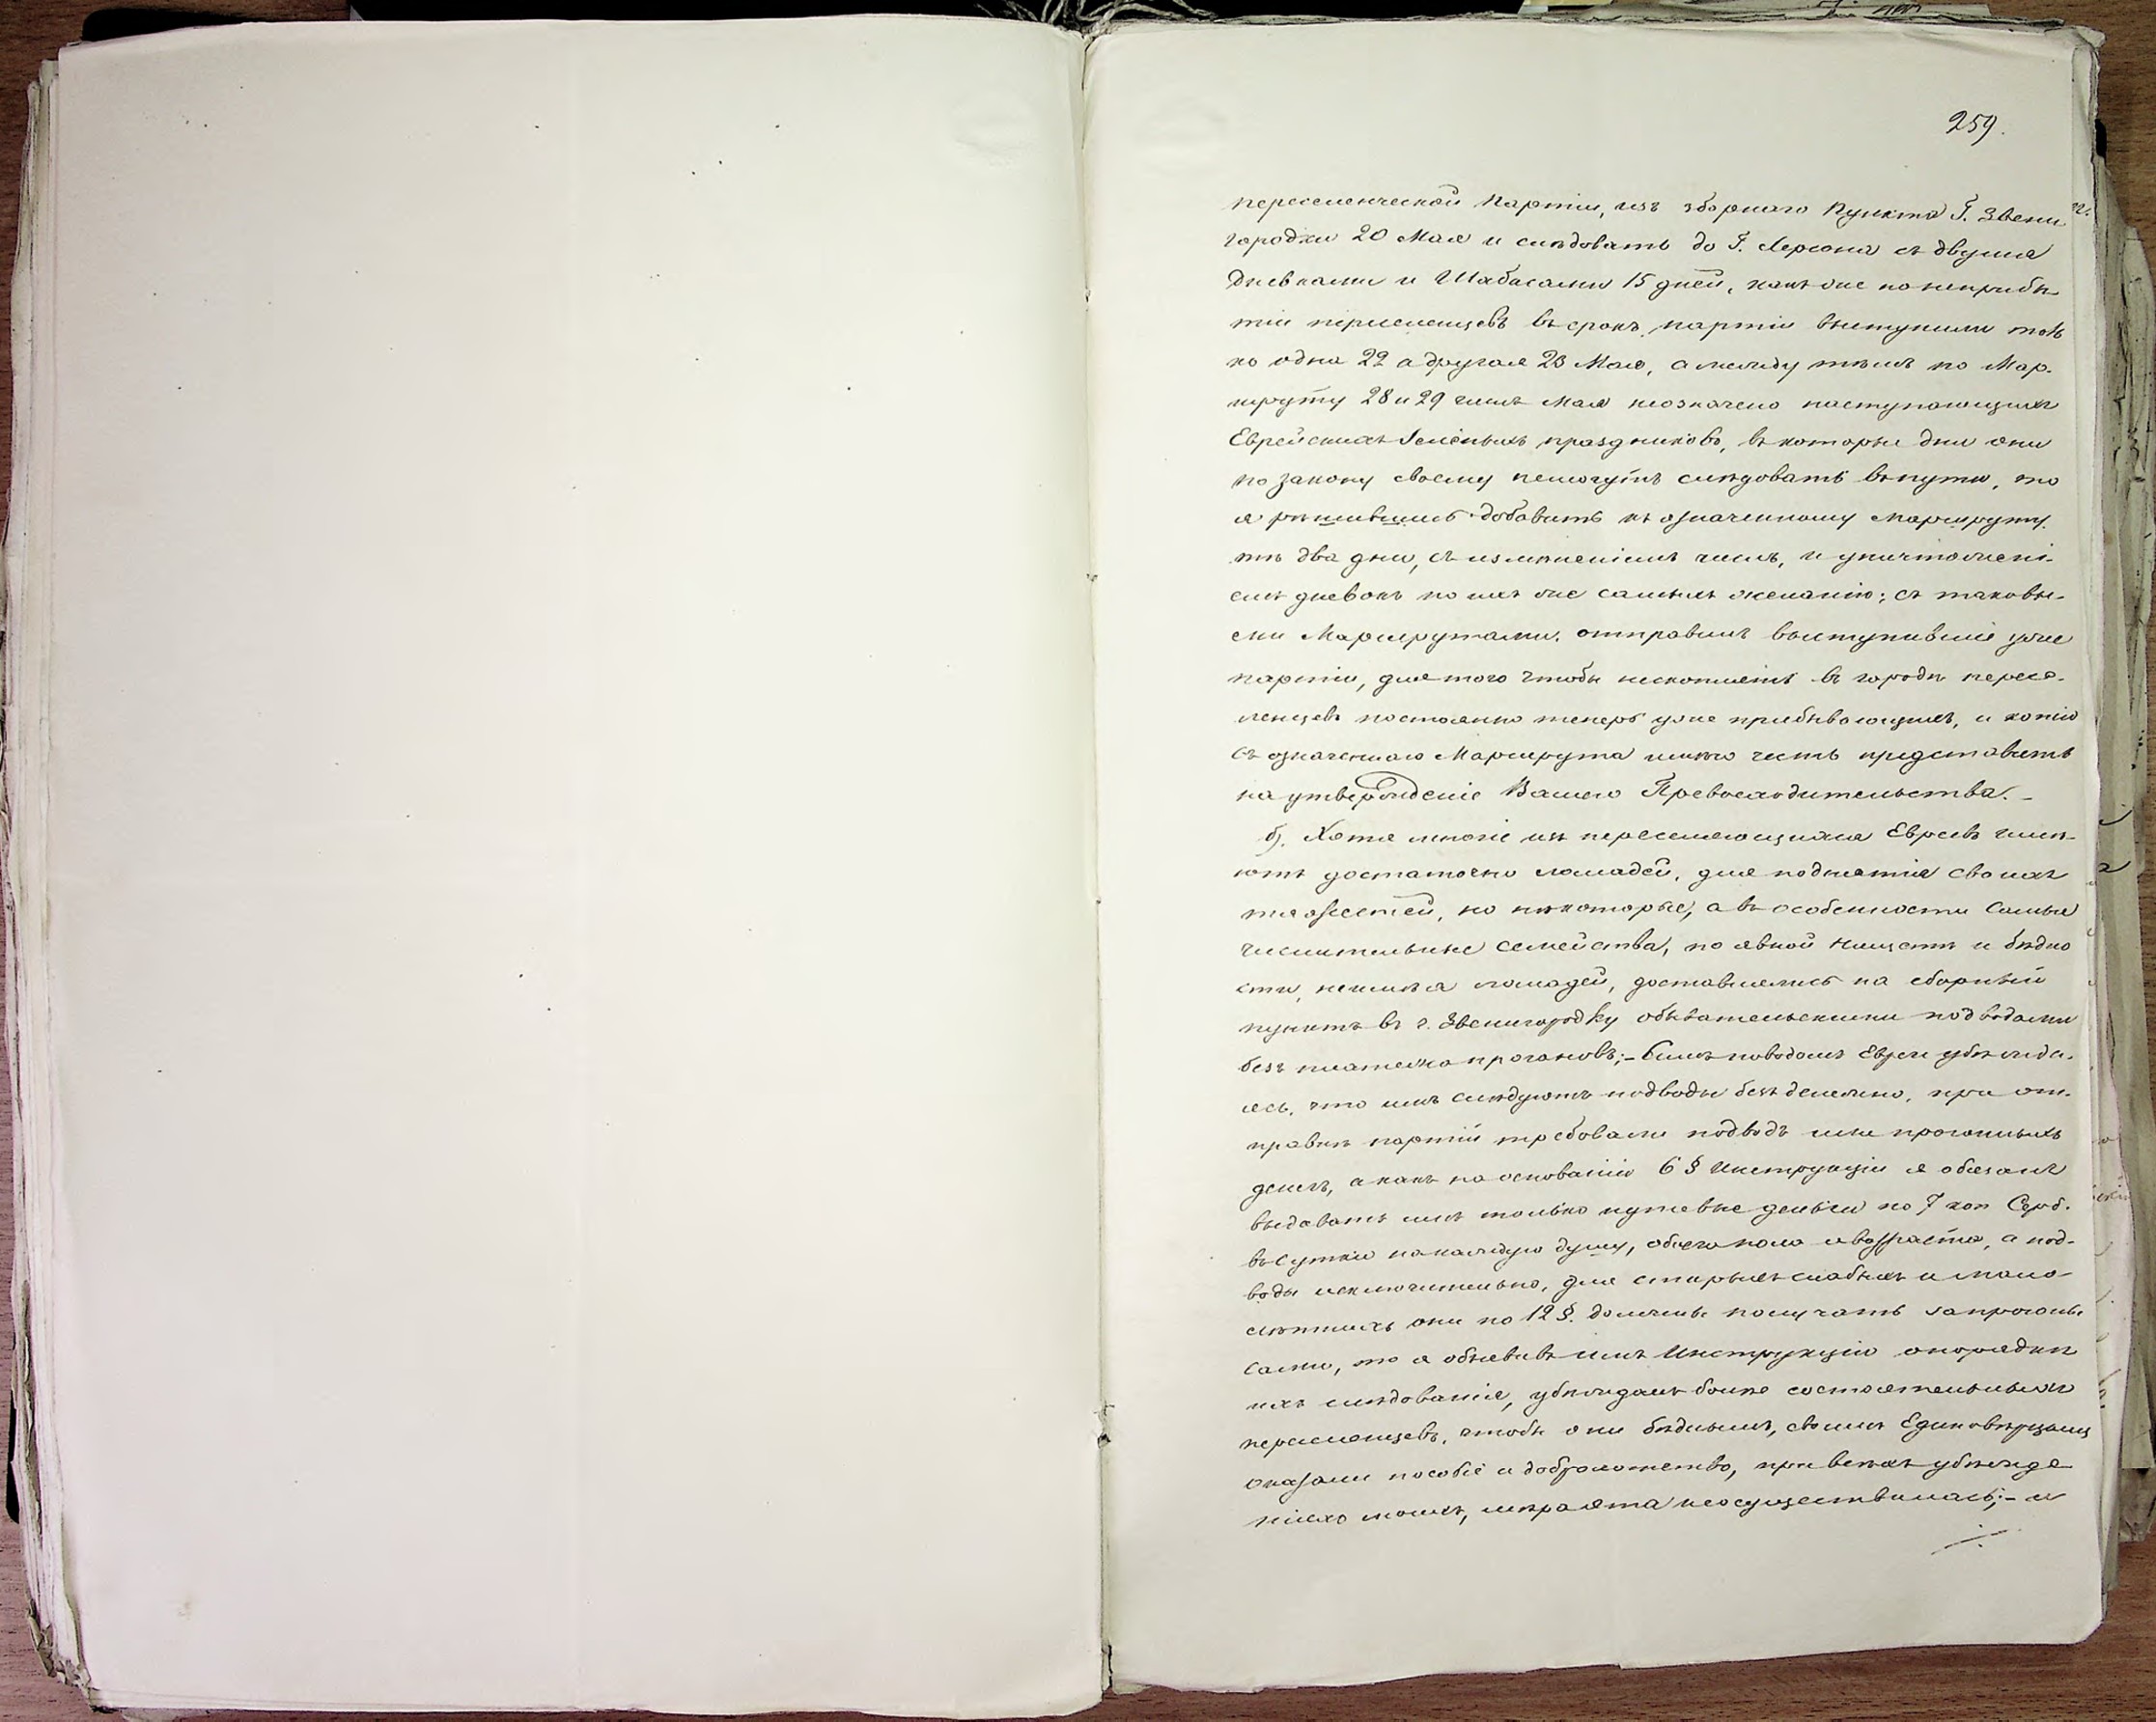 259.
переселенческой Партіи, изъ зборнаго Пункта Г. Звени
городки 20 Мая и слѣдовать до Г. Херсона съ двумя
Дневками и Шабасами 15 дней, какъ же по неприбы-
тіи переселенцевъ въ срокъ партіи выступили толь
ко одна 22 а другая 23 Мая, а между тѣмъ по Мар-
шруту 28 и 29 числъ Мая неозначено наступающихъ
Еврейскихъ Зеленыхъ праздниковъ, въ которые дни они
по закону своему немогутъ слѣдовать въ пути, то
я рѣшившись добавить къ означенному маршруту
тѣ два дни, съ измѣненіемъ числъ, и уничтожені-
емъ дневокъ по ихъ же самыхъ желанію; съ таковы-
ми Маршрутами, отправилъ выступившіе уже
партіи, для того чтобы нескоплять въ городѣ пересе-
ленцевъ постоянно теперь уже прибывающихъ, и копію
съ означеннаго Маршрута имѣю честь представить
на утвержденіе Вашего Превосходительства. -
б). Хотя многіе изъ переселяющихся Евреевъ имѣ-
ютъ достаточно лошадей, для поднятія своихъ
тяжестей, но нѣкоторые, а въ особенности самые
числительные семейства, по явной нищетѣ и бѣдно
сти, неимѣя лошадей, доставлялись на сборный
пунктъ въ г. Звенигородку обывательскими подводами
безъ платежа прогоновъ; - Симъ поводомъ Евреи убѣжда-
ясь, что имъ слѣдуютъ подводы безъ денежно, при от-
правкѣ партій требовали подводъ или прогонныхъ
денегъ, а какъ на основаніи 6 § Инструкціи я обязанъ
выдавать имъ только путевые деньги по 7 коп Сереб.
въ сутки на каждую душу, обоего пола и возраста, а под-
воды исключительно, для старыхъ слабыхъ и мало-
лѣтнихъ они по 12 §. должны получать за прогоны
сами, то я объявивъ имъ Инструкцію о порядкѣ
ихъ слѣдованія, убѣждалъ болѣе состоятельныхъ
переселенцевъ, чтобы они бѣднымъ, своимъ Единовѣрцамъ
оказали пособіе и доброхотство, при всѣхъ убѣжде
ніяхъ моихъ, мѣра эта неосуществилась; - и